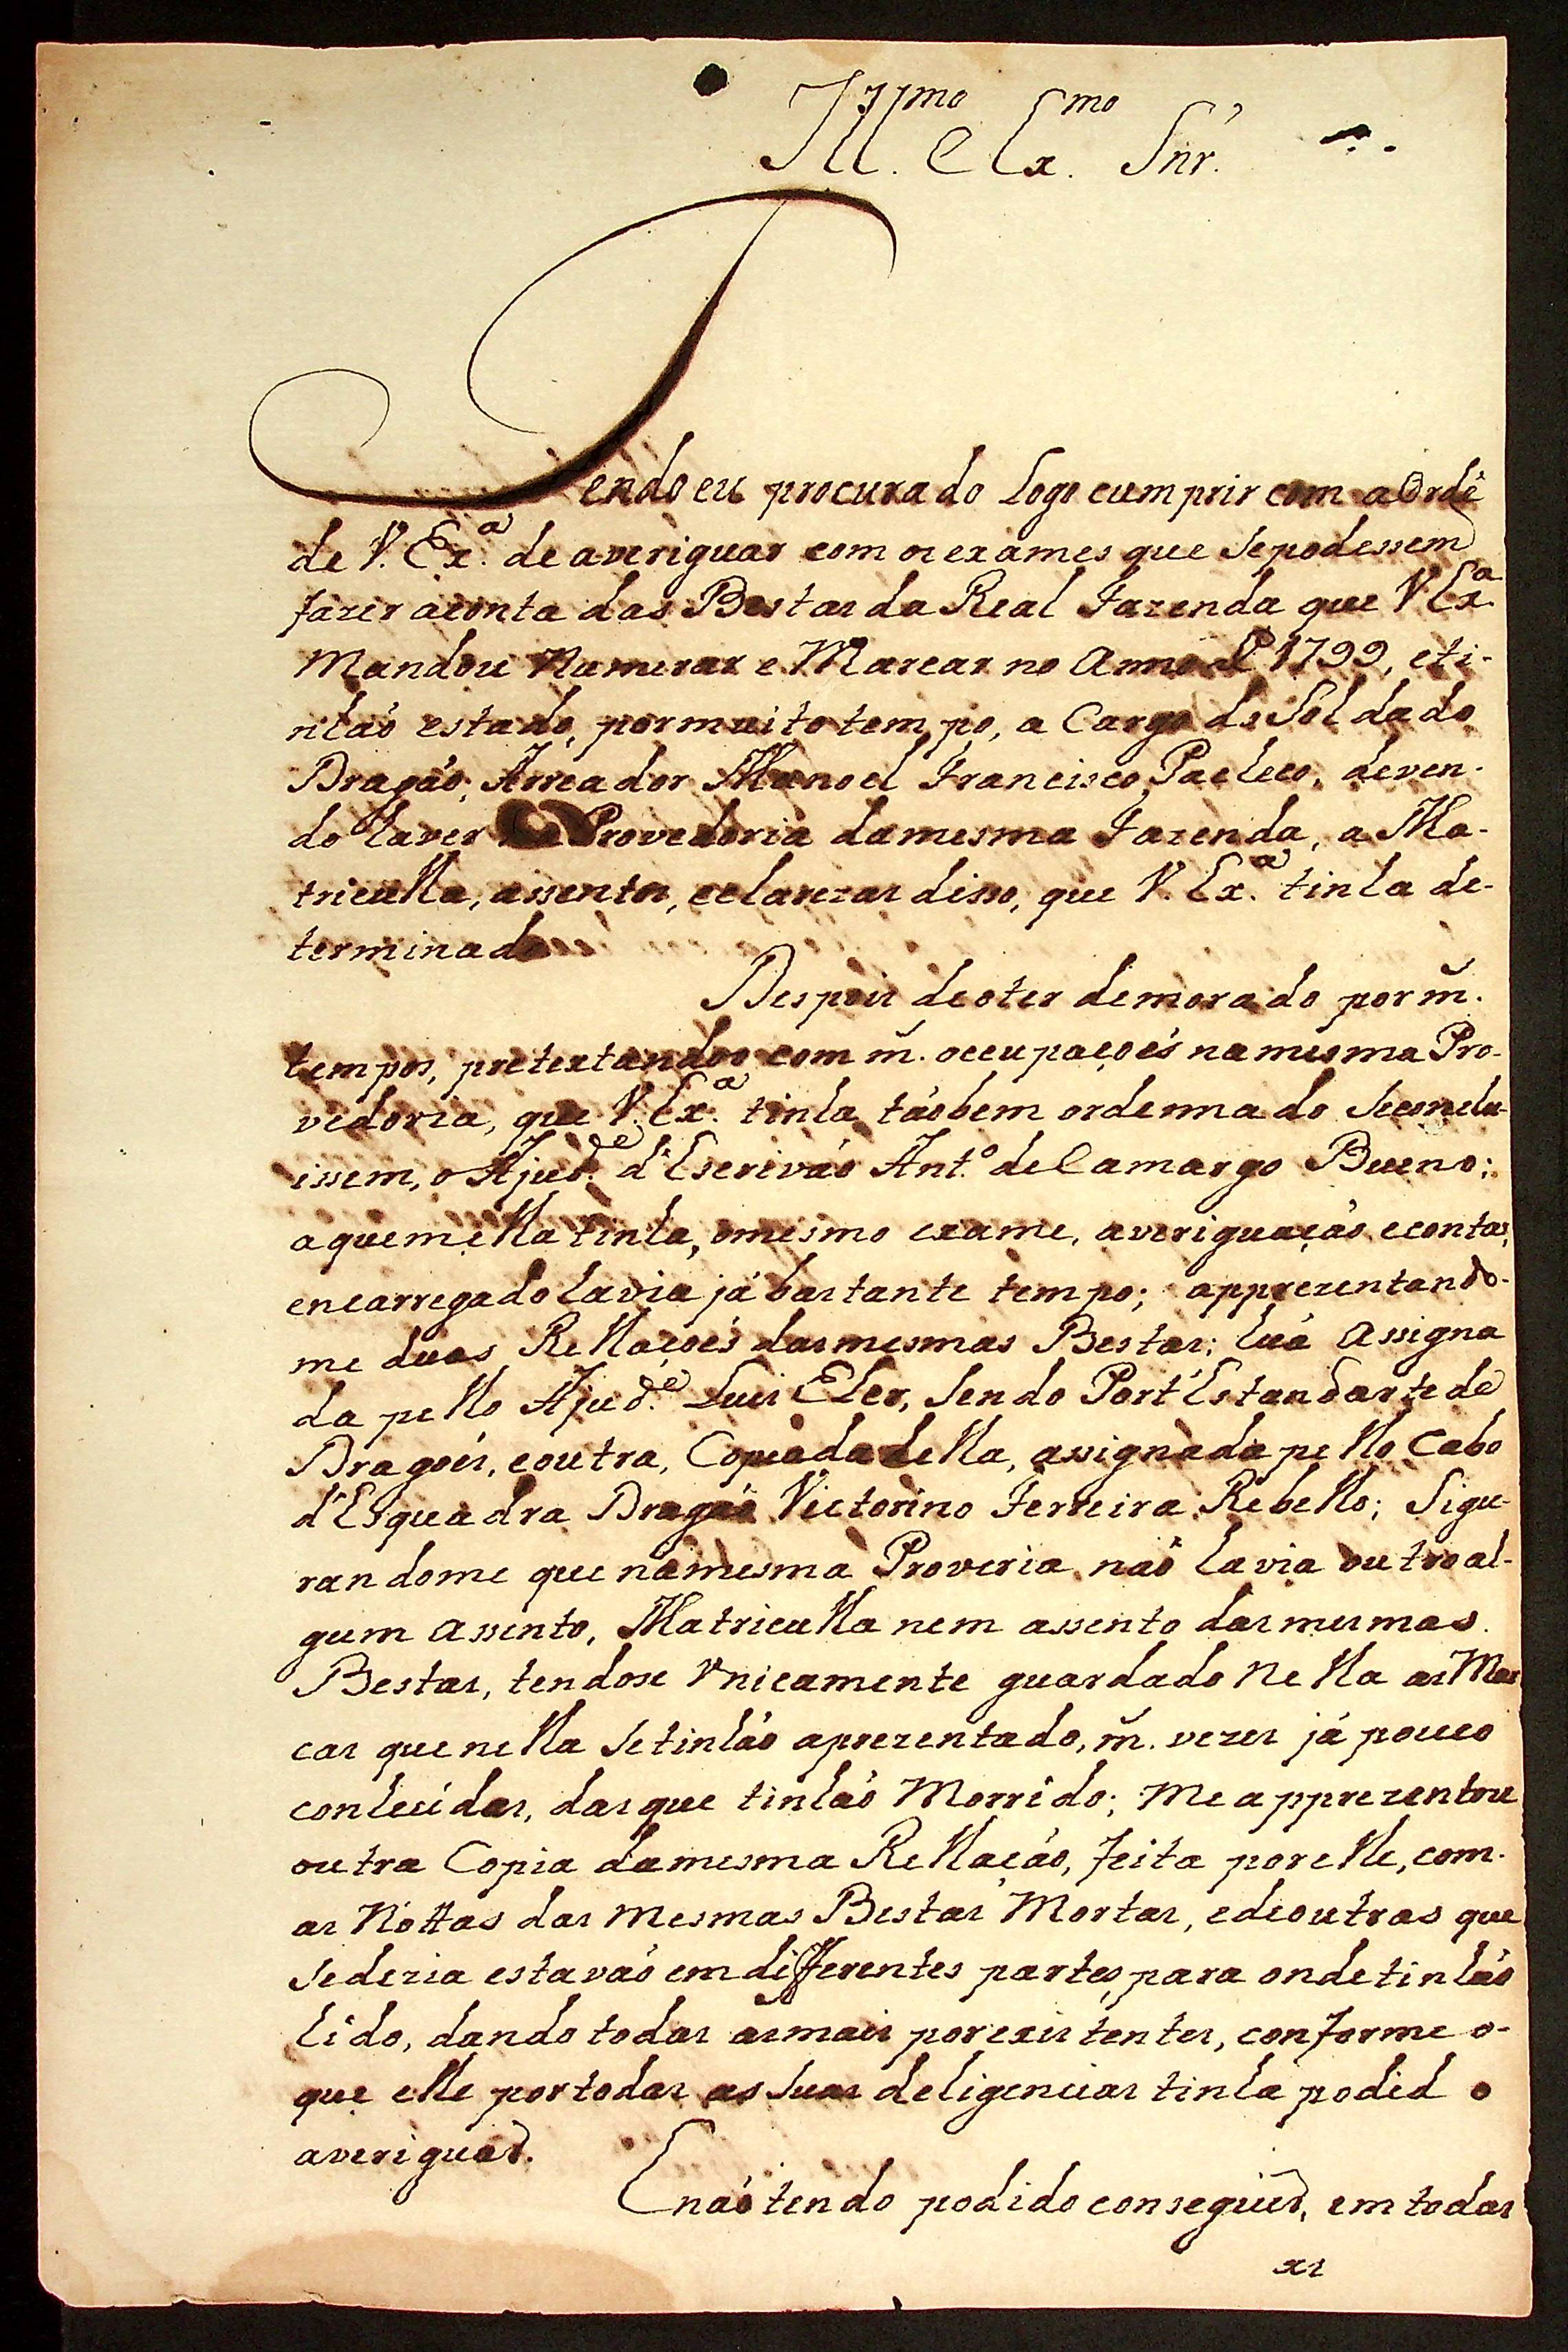 Ill.mo e Ex.mo Snr.'
Tendo eu procurado logo cumprir com a Ordẽ
de V. Ex.a de averiguar com os exames que se podessem
fazer a conta das Bestas da Real Fazenda que V Ex.a
Mandou Numerar e Marcar no Anno d 1799, e ti-
nhaõ estado, por muito tempo, a Cargo do Soldado
Dragaõ, Arreador Manoel Francisco Pacheco, deven-
do haver Provedoria da mesma Fazenda, a Ma-
triculla, assentos, e clarezas disso, que V. Ex.a tinha de-
terminado
Despois de o ter demorado por m.̃
tempos, pretextandoo com m.̃ occupaçoẽs na mesma Pro-
vedoria, que V. Ex.a tinha taõbem ordennado se conclu-
issem, o Ajud.e d'Escrivaõ Ant.o de Camargo Bueno;
a quem ella tinha, o mesmo exame, averiguaçaõ e contas,
encarregado havia já bastante tempo; apprezentando-
me duas Rellaçoẽs das mesmas Bestas; huã Assigna
da pello Ajud.e Luis Eler, sendo Port'Estandarte de
Dragoẽs, e outra, Copeada della, assignada pello Cabo
d'Esquadra Dragaõ Victorino Ferreira Rebello; Sigu-
randome que na mesma Proveria naõ havia outro al-
gum Assento, Matriculla nem assento das mesmas
Bestas, tendose Vnicamente guardado Nella as Mar
cas que nella se tinhaõ aprezentado, m.̃ vezes já pouco
conhecidas, das que tinhaõ Morrido; Me apprezentou
outra Copia da mesma Rellaçaõ, feita por elle, com-
as Nottas das Mesmas Bestas Mortas, e de outras que
se dezia estavaõ em differentes partes, para onde tinhaõ
hido, dando todas as mais por existentes, conforme o-
que elle por todas as suas deligencias tinha podido
averiguar.
E naõ tendo podido conseguir, em todas
as